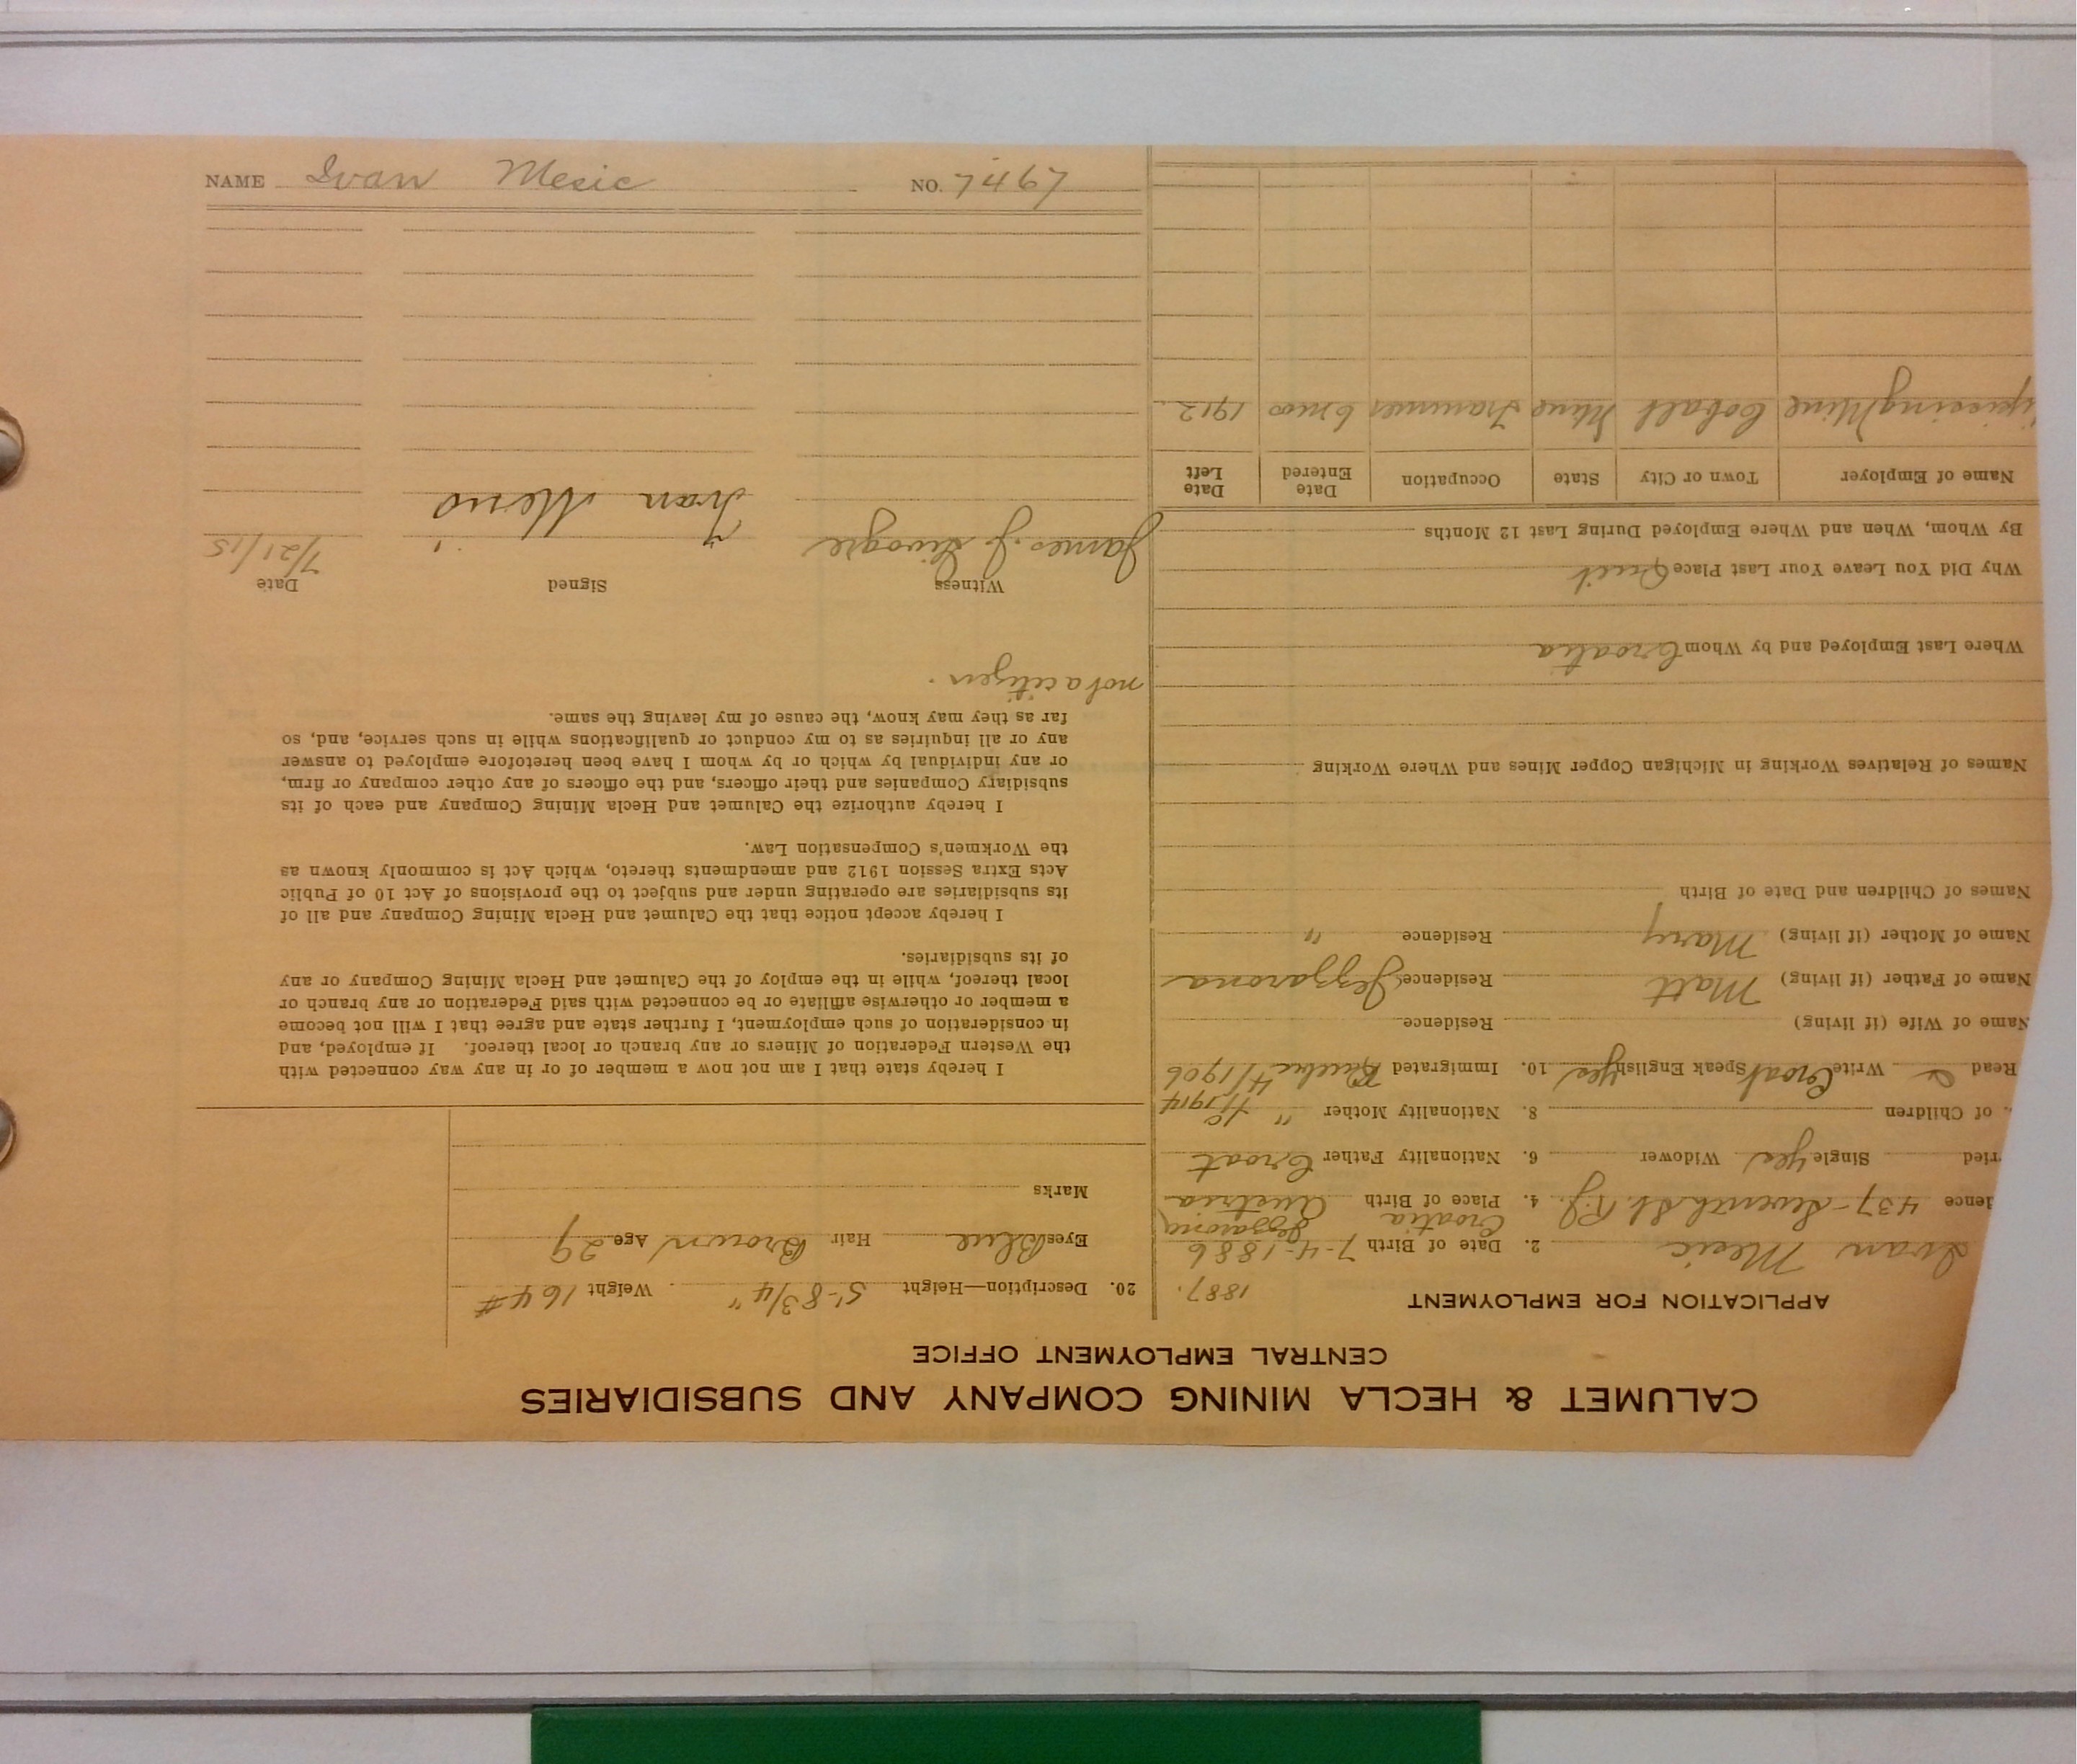 CALUMET & HECLA MINING COMPANY AND SUBSIDIARIES
CENTRAL EMPLOYMENT OFFICE
APPLICATION FOR EMPLOYMENT 1887.
Ivan Mesic 2. Date of Birth 7-4-1886
dence 437-Seventh St. R.J. 4. Place of Birth Croatia Austria
ried Single Yes Widower 6. Nationality Father Croat
. of Children 8. Nationality Mother " 4/1914
Read Write Croat Speak English Yes 10. Immigrated 4/1906
Name of Wife (if living) Residence
Name of Father (if living) Matt Residence Jezzarona
Name of Mother (if living) Mary Residence "
Names of Children and Date of Birth
Names of Relatives Working in Michigan Copper Mines and Where Working
Where Last Employed and by Whom Croatia
Why Did You Leave Your Last Place Quit
By Whom, When and Where Employed During Last 12 Months
Name of Employer Town or City State Occupation Date Entered Date Left
Mine Cobalt Trammer 6 mos 1912
20. Description—Height 5'-8 3/4" Weight 164#
Eyes Blue Hair Brown Age 29
Marks
I hereby state that I am not now a member of or in any way connected with
the Western Federation of Miners or any branch or local thereof. If employed, and
in consideration of such employment, I further state and agree that I will not become
a member or otherwise affiliate or be connected with said Federation or any branch or
local thereof, while in the employ of the Calumet and Hecla Mining Company or any
of its subsidiaries.
I hereby accept notice that the Calumet and Hecla Mining Company and all of
its subsidiaries are operating under and subject to the provisions of Act 10 of Public
Acts Extra Session 1912 and amendments thereto, which Act is commonly known as
the Workmen's Compensation Law.
I hereby authorize the Calumet and Hecla Mining Company and each of its
subsidiary Companies and their officers, and the officers of any other company or firm,
or any individual by which or by whom I have been heretofore employed to answer
any or all inquiries as to my conduct or qualifications while in such service, and, so
far as they may know, the cause of my leaving the same.
not a citizen.
Witness Signed Date
James J. Ivan 7/21/15
NAME Ivan Mesic NO. 7467